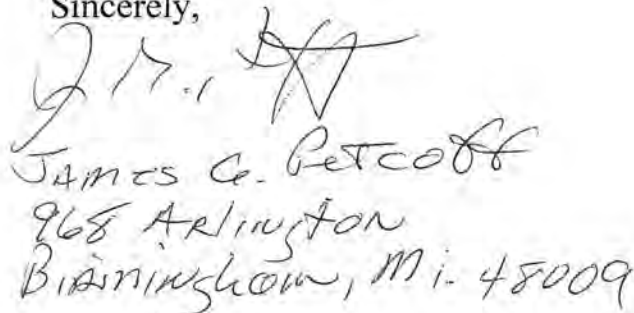 Sincerely,
James G. Petcoff
968 Arlington
Birmingham, Mi. 48009